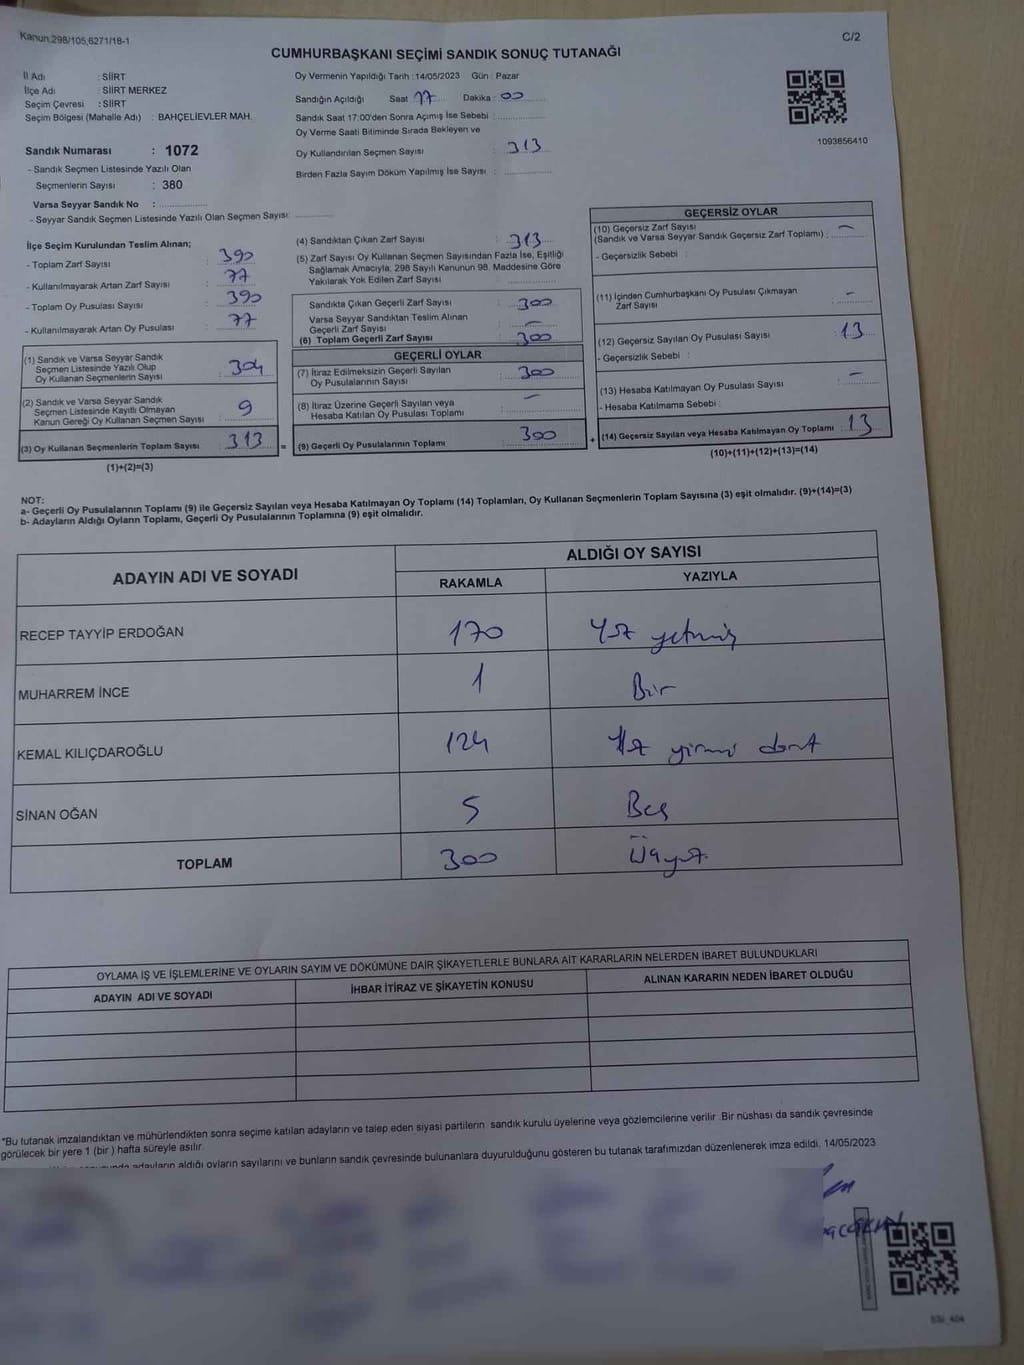 Kanun:298/105,6271/18-1
C/2
CUMHURBAŞKANI SEÇİMİ SANDIK SONUÇ TUTANAĞI
İl Adı : SİİRT
İlçe Adı : SİİRT MERKEZ
Seçim Çevresi : SİİRT
Seçim Bölgesi (Mahalle Adı) : BAHÇELİEVLER MAH.
Sandık Numarası : 1072
- Sandık Seçmen Listesinde Yazılı Olan
Seçmenlerin Sayısı : 380
Varsa Seyyar Sandık No :
- Seyyar Sandık Seçmen Listesinde Yazılı Olan Seçmen Sayısı:
Oy Vermenin Yapıldığı Tarih : 14/05/2023 Gün : Pazar
Sandığın Açıldığı Saat 17 Dakika : 00
Sandık Saat 17:00'den Sonra Açımış İse Sebebi :
Oy Verme Saati Bitiminde Sırada Bekleyen ve
Oy Kullandırılan Seçmen Sayısı : 313
Birden Fazla Sayım Döküm Yapılmış İse Sayısı :
1093856410
İlçe Seçim Kurulundan Teslim Alınan;
- Toplam Zarf Sayısı : 390
- Kullanılmayarak Artan Zarf Sayısı : 77
- Toplam Oy Pusulası Sayısı : 390
- Kullanılmayarak Artan Oy Pusulası : 77
(1) Sandık ve Varsa Seyyar Sandık
Seçmen Listesinde Yazılı Olup
Oy Kullanan Seçmenlerin Sayısı : 304
(2) Sandık ve Varsa Seyyar Sandık
Seçmen Listesinde Kayıtlı Olmayan
Kanun Gereği Oy Kullanan Seçmen Sayısı : 9
(3) Oy Kullanan Seçmenlerin Toplam Sayısı : 313 =
(1)+(2)=(3)
(4) Sandıktan Çıkan Zarf Sayısı : 313
(5) Zarf Sayısı Oy Kullanan Seçmen Sayısından Fazla İse, Eşitliği
Sağlamak Amacıyla, 298 Sayılı Kanunun 98. Maddesine Göre
Yakılarak Yok Edilen Zarf Sayısı :
Sandıkta Çıkan Geçerli Zarf Sayısı : 300
Varsa Seyyar Sandıktan Teslim Alınan
Geçerli Zarf Sayısı : –
(6) Toplam Geçerli Zarf Sayısı : 300
GEÇERLİ OYLAR
(7) İtiraz Edilmeksizin Geçerli Sayılan
Oy Pusulalarının Sayısı : 300
(8) İtiraz Üzerine Geçerli Sayılan veya
Hesaba Katılan Oy Pusulası Toplamı : –
(9) Geçerli Oy Pusulalarının Toplamı : 300 +
GEÇERSİZ OYLAR
(10) Geçersiz Zarf Sayısı
(Sandık ve Varsa Seyyar Sandık Geçersiz Zarf Toplamı) : –
- Geçersizlik Sebebi :
(11) İçinden Cumhurbaşkanı Oy Pusulası Çıkmayan
Zarf Sayısı : –
(12) Geçersiz Sayılan Oy Pusulası Sayısı : 13
- Geçersizlik Sebebi :
(13) Hesaba Katılmayan Oy Pusulası Sayısı : –
- Hesaba Katılmama Sebebi :
(14) Geçersiz Sayılan veya Hesaba Katılmayan Oy Toplamı : 13
(10)+(11)+(12)+(13)=(14)
NOT:
a- Geçerli Oy Pusulalarının Toplamı (9) ile Geçersiz Sayılan veya Hesaba Katılmayan Oy Toplamı (14) Toplamları, Oy Kullanan Seçmenlerin Toplam Sayısına (3) eşit olmalıdır. (9)+(14)=(3)
b- Adayların Aldığı Oyların Toplamı, Geçerli Oy Pusulalarının Toplamına (9) eşit olmalıdır.
ADAYIN ADI VE SOYADI ALDIĞI OY SAYISI
RAKAMLA YAZIYLA
RECEP TAYYİP ERDOĞAN 170 Yüz yetmiş
MUHARREM İNCE 1 Bir
KEMAL KILIÇDAROĞLU 124 Yüz yirmi dört
SİNAN OĞAN 5 Beş
TOPLAM 300 Üçyüz
OYLAMA İŞ VE İŞLEMLERİNE VE OYLARIN SAYIM VE DÖKÜMÜNE DAİR ŞİKAYETLERLE BUNLARA AİT KARARLARIN NELERDEN İBARET BULUNDUKLARI
ADAYIN ADI VE SOYADI İHBAR İTİRAZ VE ŞİKAYETİN KONUSU ALINAN KARARIN NEDEN İBARET OLDUĞU
*Bu tutanak imzalandıktan ve mühürlendikten sonra seçime katılan adayların ve talep eden siyasi partilerin sandık kurulu üyelerine veya gözlemcilerine verilir .Bir nüshası da sandık çevresinde
görülecek bir yere 1 (bir) hafta süreyle asılır.
adayların aldığı oyların sayılarını ve bunların sandık çevresinde bulunanlara duyurulduğunu gösteren bu tutanak tarafımızdan düzenlenerek imza edildi. 14/05/2023